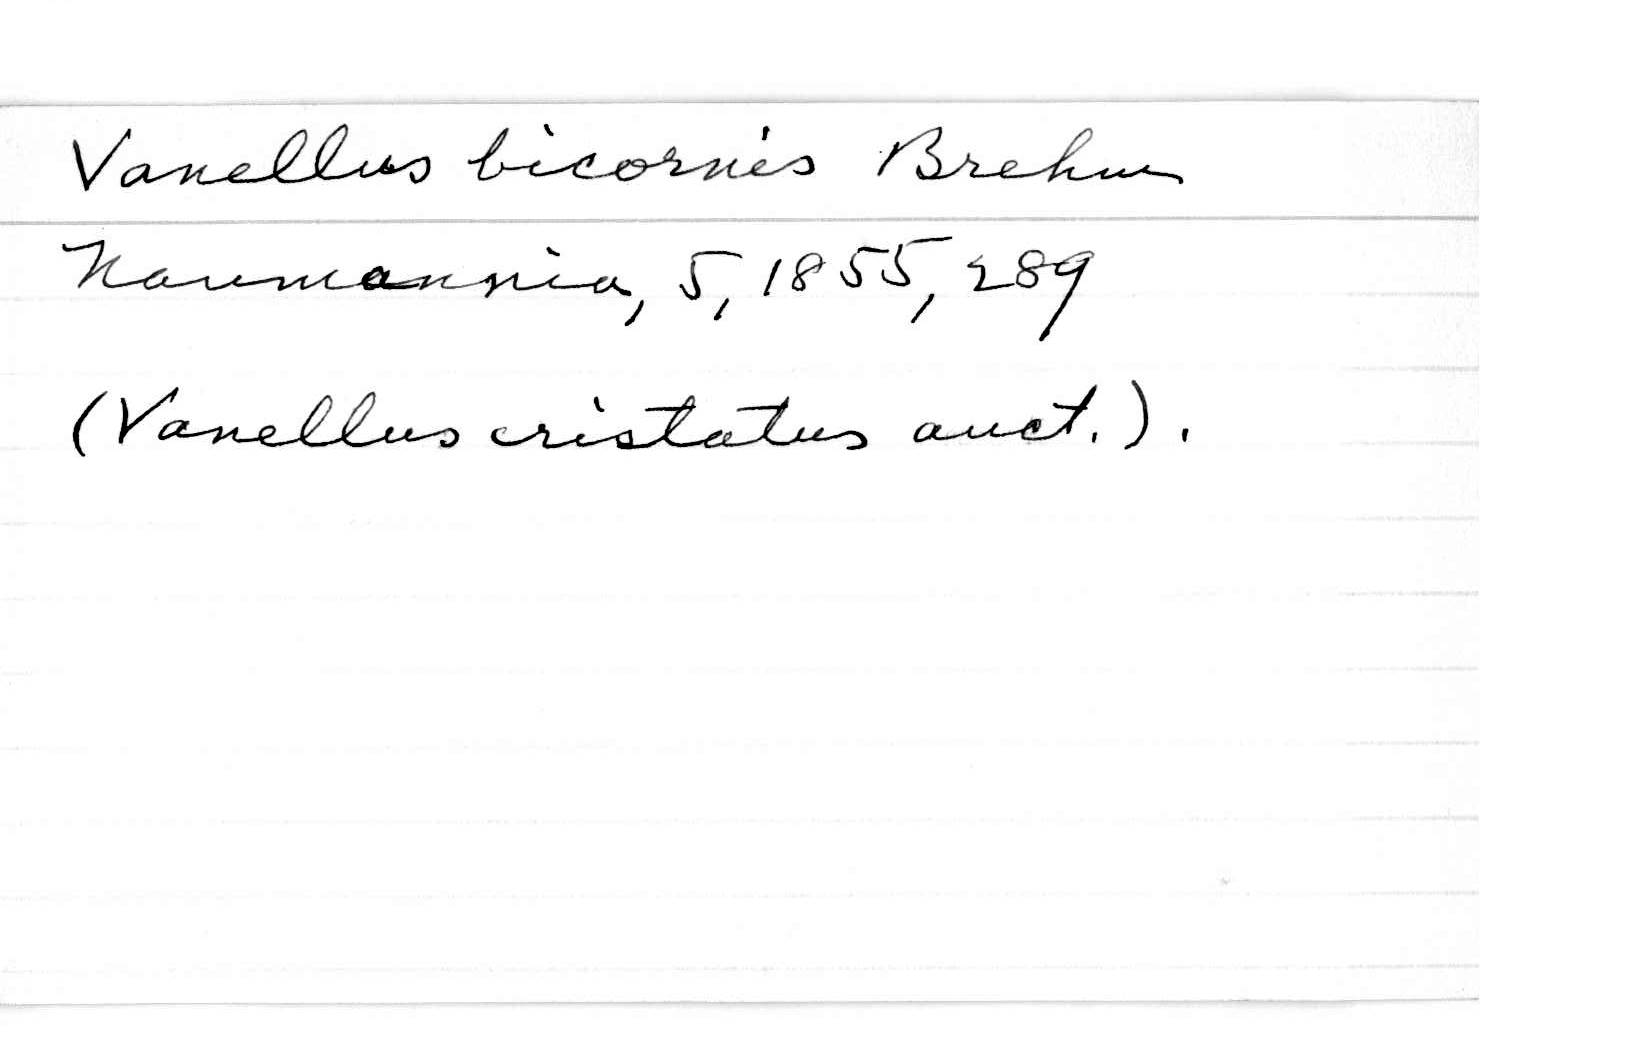 Vanellus bicornis Brehm
Naumannia, 5, 1855, 289
(Vanellus cristatus auct.).